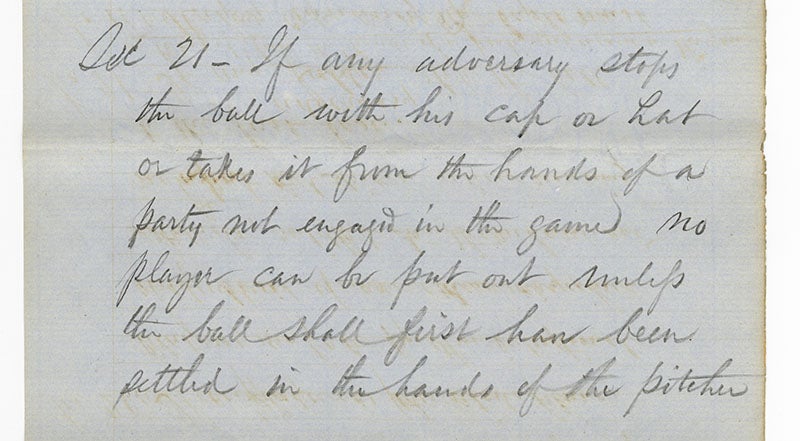 Sec 21 - If any adversary stops
the ball with his cap or hat
or takes it from the hands of a
party not engaged in the game no
player can be put out unless
the ball shall first have been
settled in the hands of the pitcher